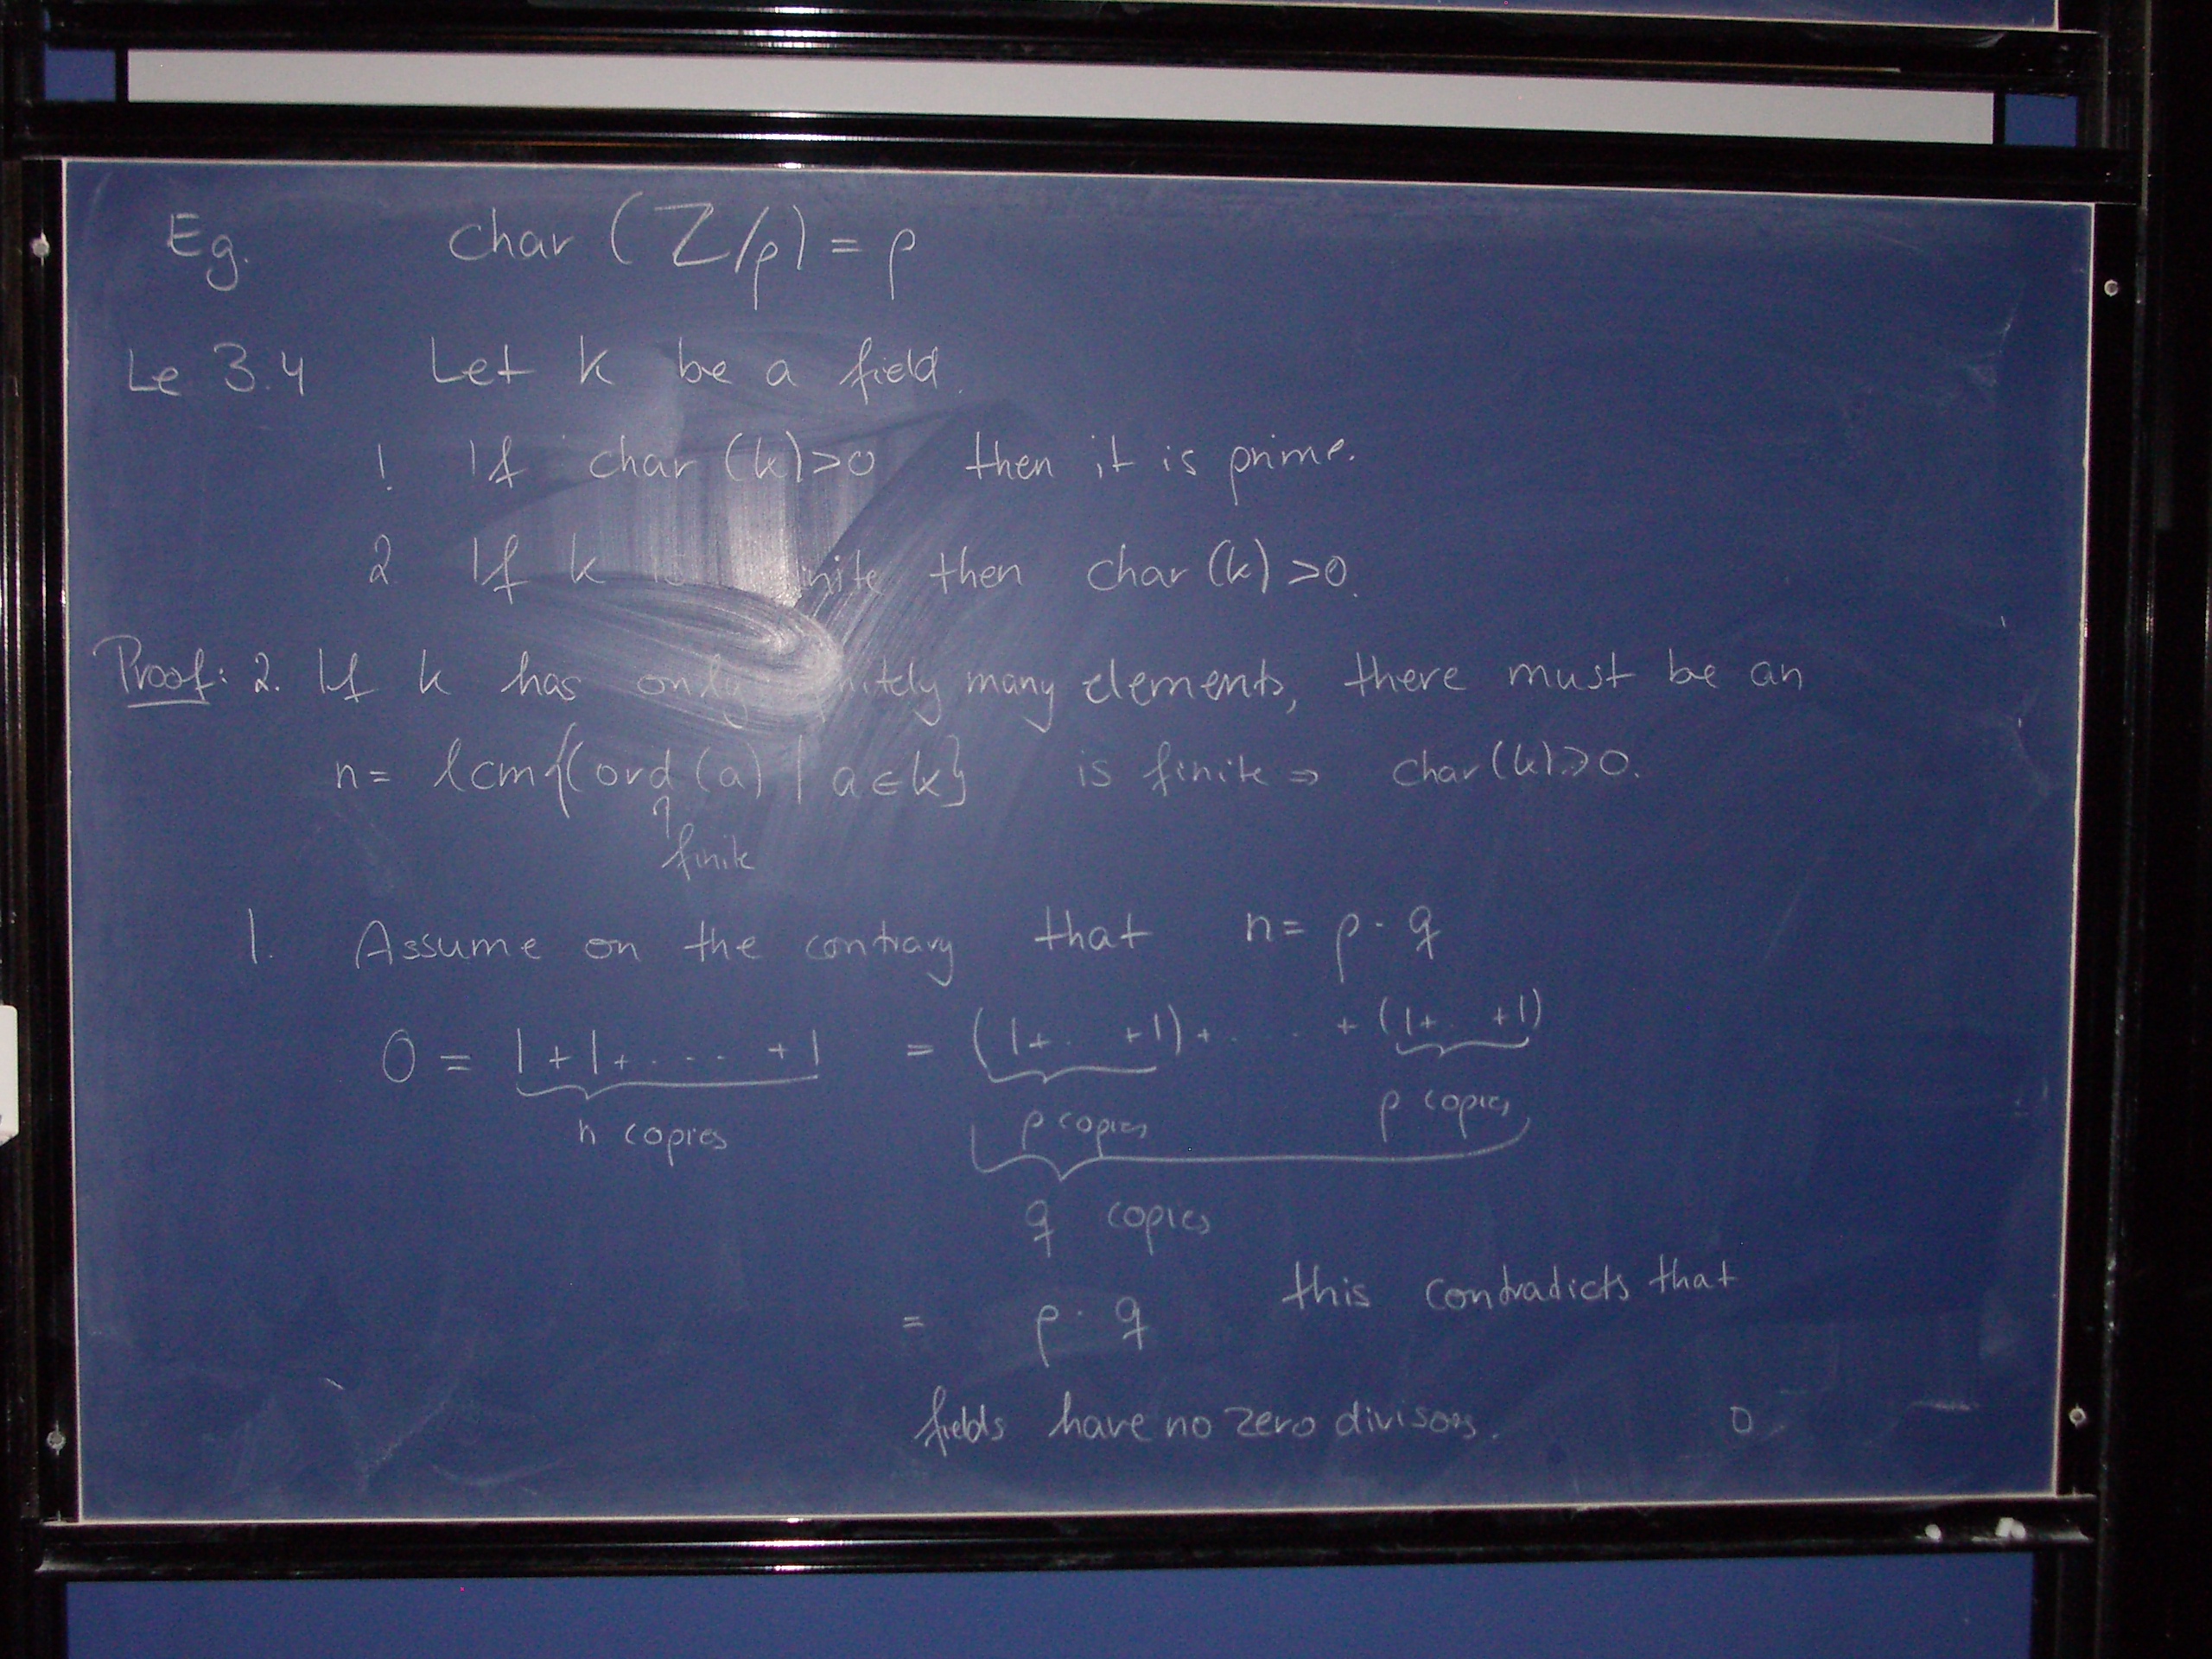 Eg. char (Z/p) = p
Le 3.4 Let k be a field.
1 If char (k)>0 then it is prime.
2 If k is finite then char (k) >0.
Proof: 2. If k has only finitely many elements, there must be an
n= lcm{(ord (a) | a∈k} is finite ⇒ char(k)>0.
↑
finite
1. Assume on the contrary that n= p·q
0 = 1+1+....+1 = (1+..+1)+....+(1+..+1)
n copies p copies p copies
q copies
= p·q this contradicts that
fields have no zero divisors. □